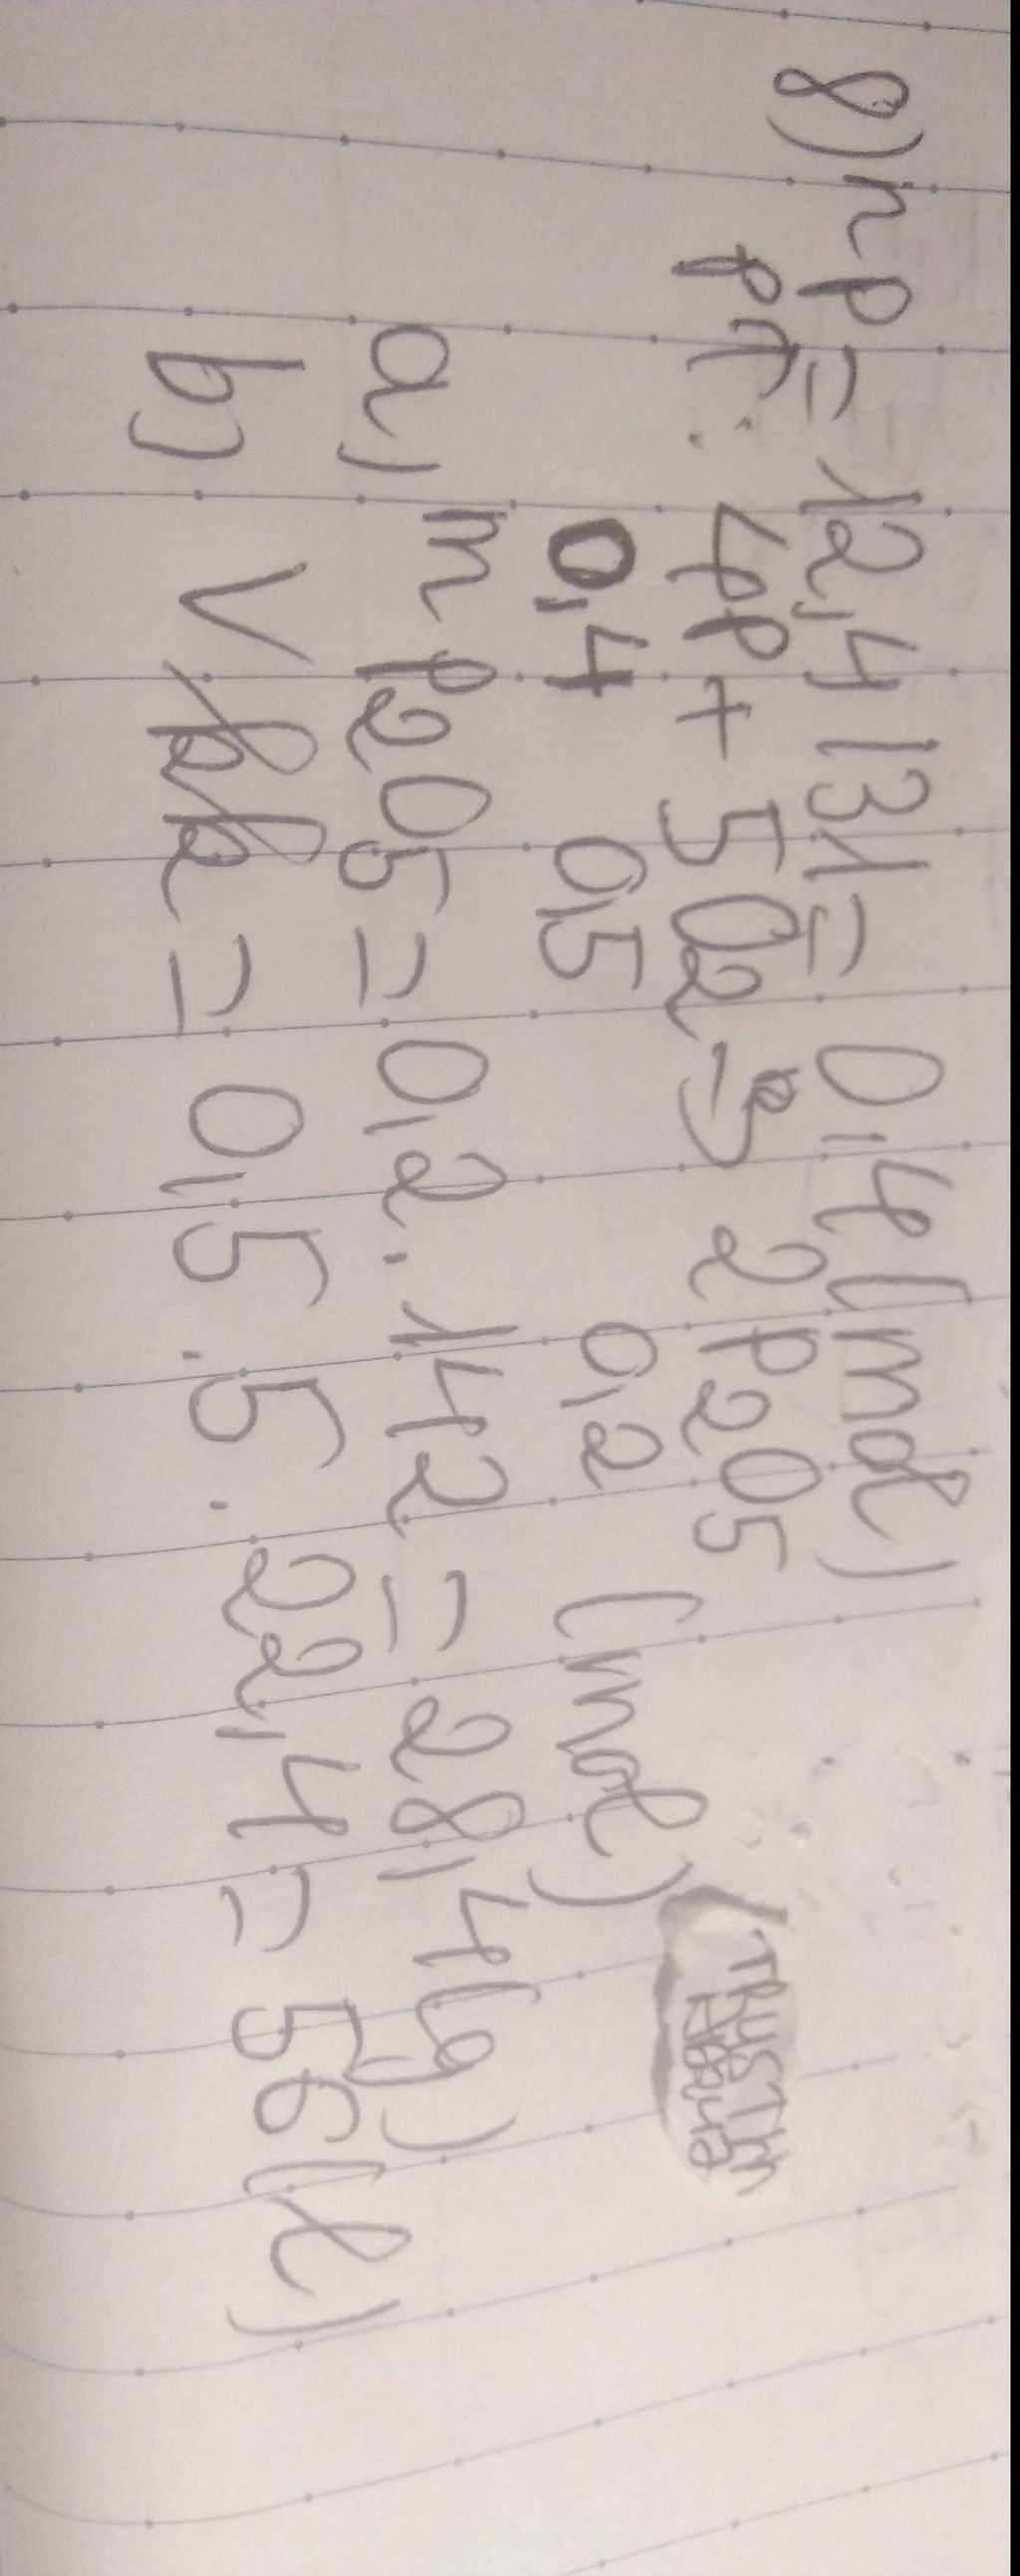 8) n P = 12,4 / 31 = 0,4 (mol)
PT: 4P + 5O2 → 2P2O5
0,4 0,5 0,2 (mol)
a) m P2O5 = 0,2 . 142 = 28,4 (g)
b) V kk = 0,5 . 5 . 22,4 = 56 (l)